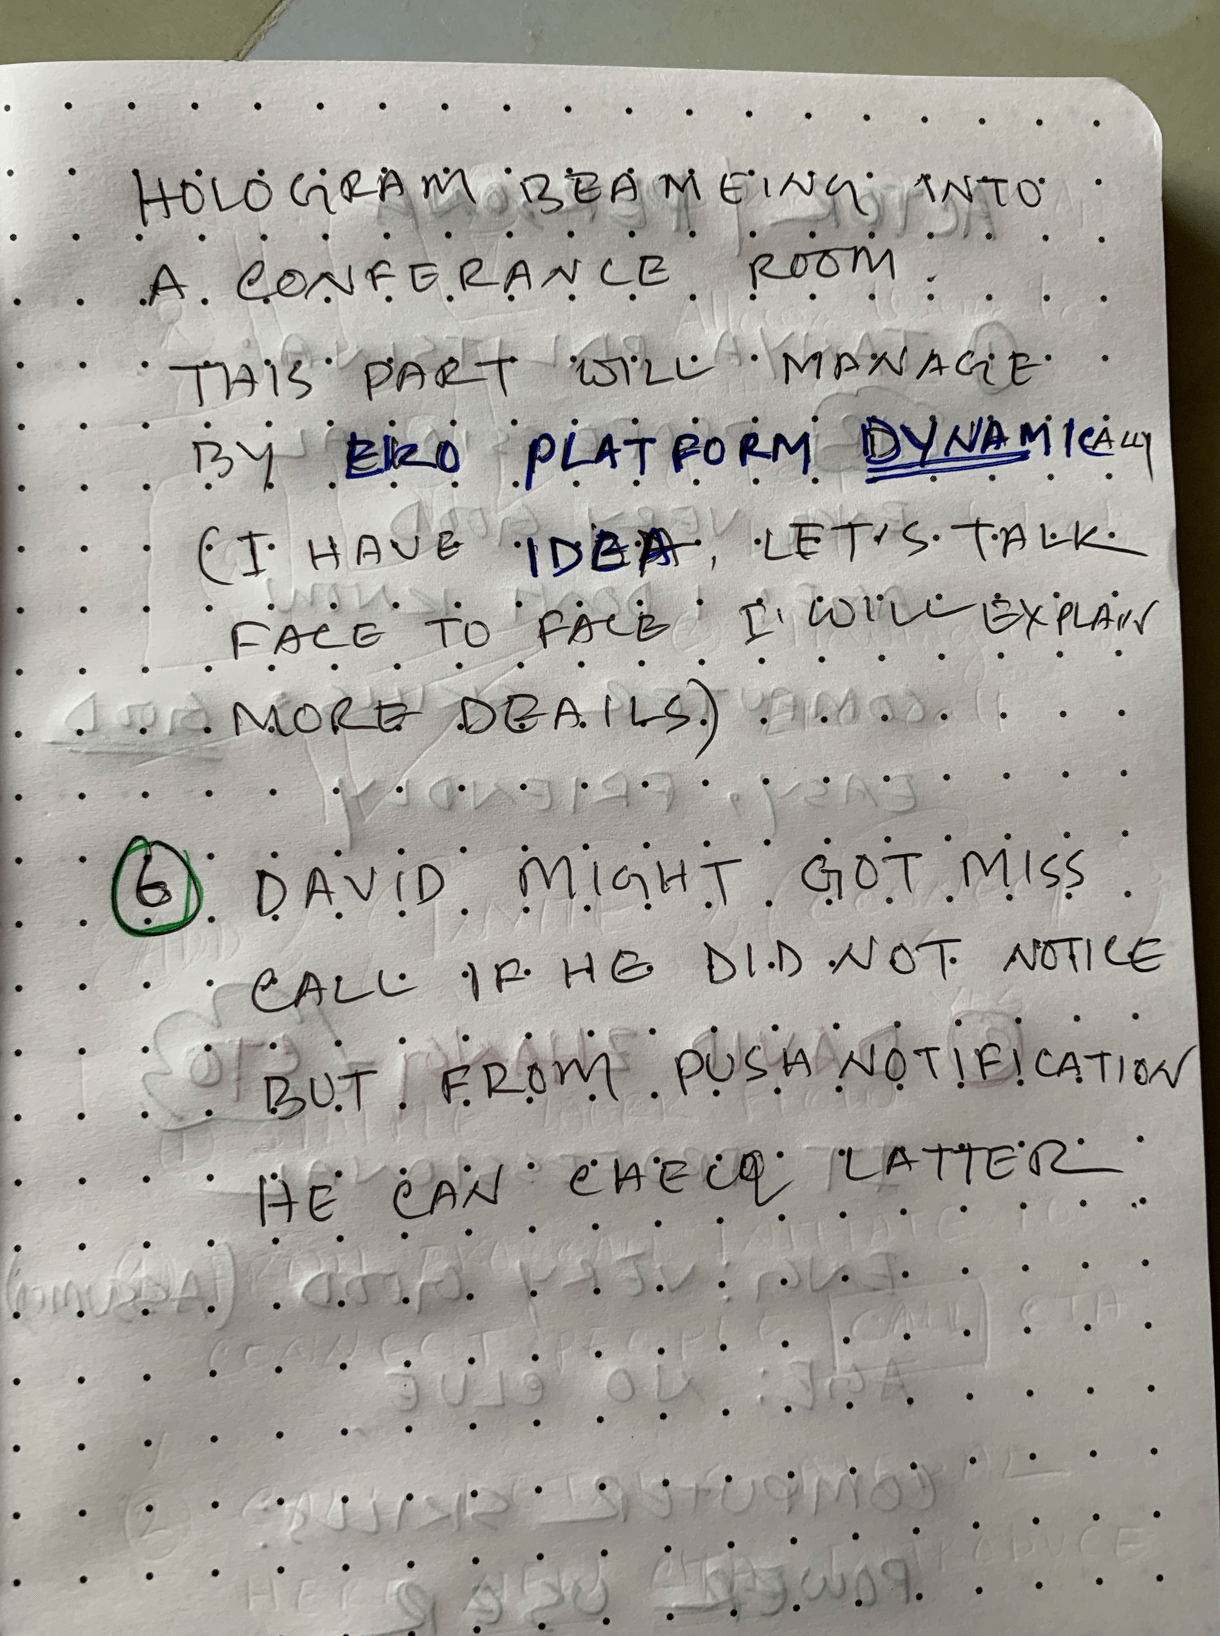 HOLOGRAM BEAMEING INTO
A CONFERANCE ROOM.
THIS PART WILL MANAGE
BY EKO PLATFORM DYNAMICALLY
(I HAVE IDEA, LET'S TALK
FACE TO FACE I WILL EXPLAIN
MORE DEAILS)
6 DAVID MIGHT GOT MISS
CALL IF HE DID NOT NOTICE
BUT FROM PUSH NOTIFICATION
HE CAN CHECQ LATTER